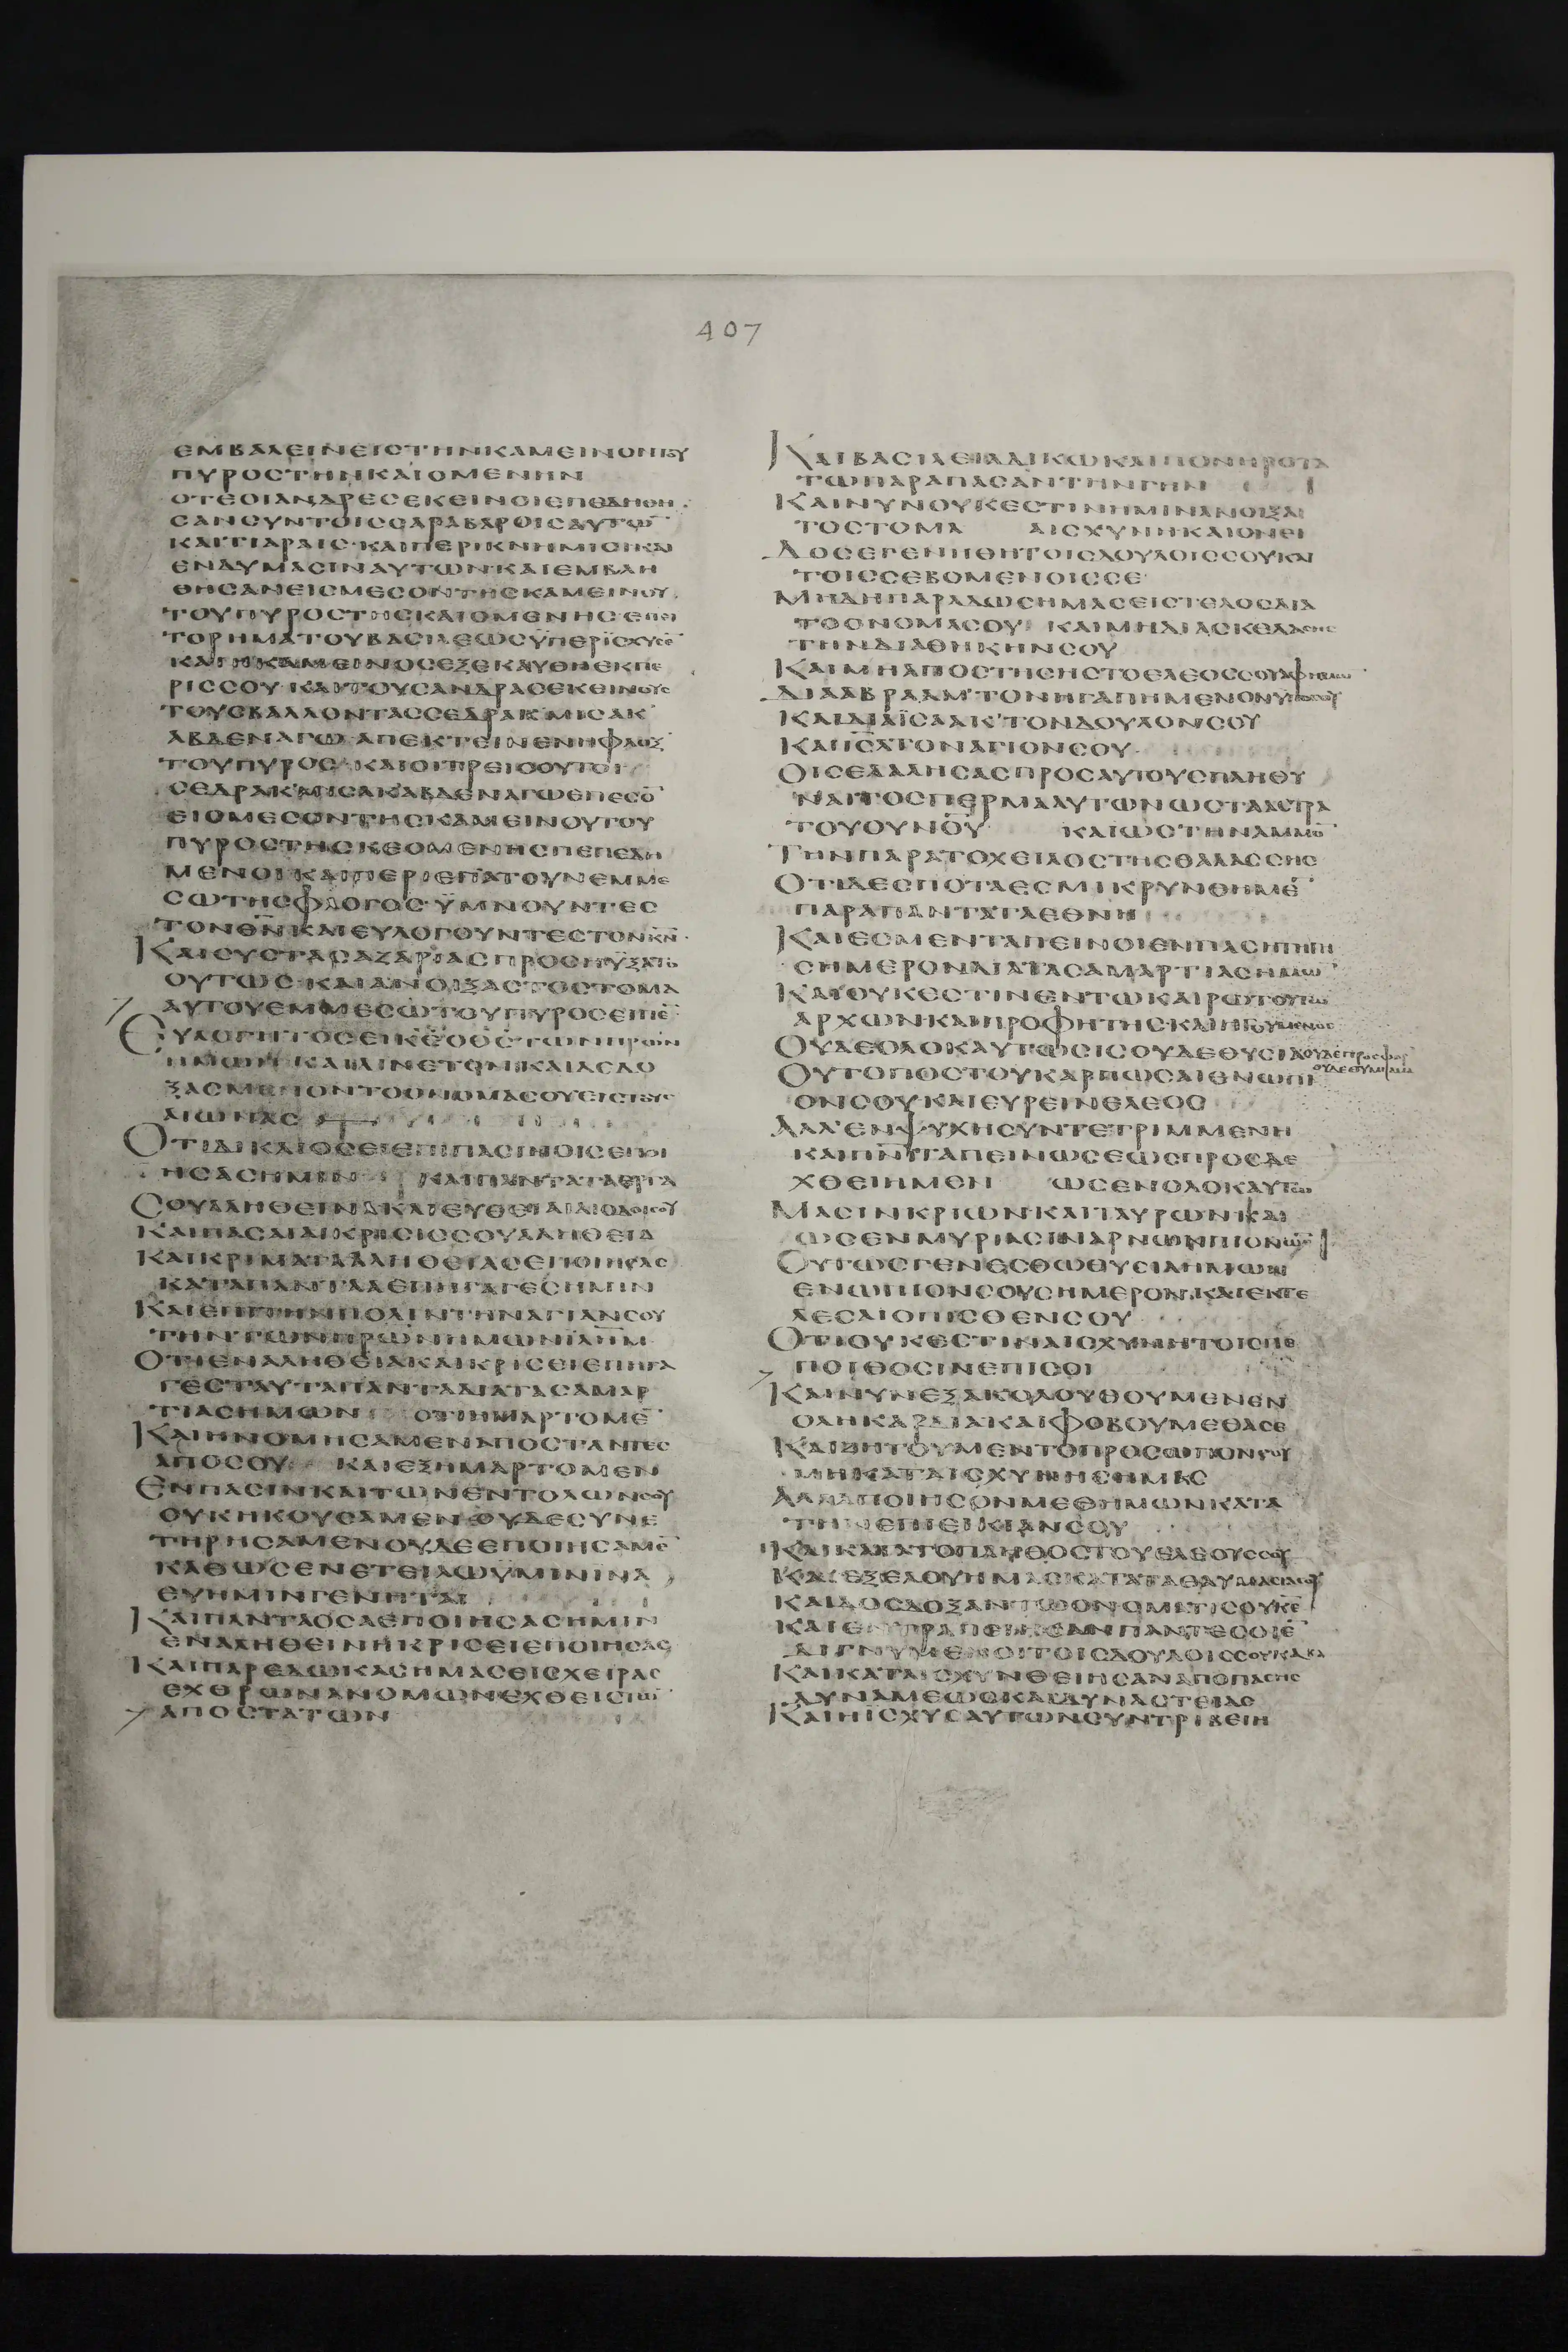 407
ΕΜΒΑΛΕΙΝΕΙΣΤΗΝΚΑΜΕΙΝΟΝΤΟΥ
ΠΥΡΟΣΤΗΝΚΑΙΟΜΕΝΗΝ
ΟΤΕΟΙΑΝΔΡΕΣΕΚΕΙΝΟΙΕΠΕΔΗΘΗ
ΣΑΝΣΥΝΤΟΙΣΣΑΡΑΒΑΡΟΙΣΑΥΤΩ̅
ΚΑΙΤΙΑΡΑΙΣ·ΚΑΙΠΕΡΙΚΝΗΜΙΣΙΚΑΙ
ΕΝΔΥΜΑΣΙΝΑΥΤΩΝΚΑΙΕΜΒΛΗ
ΘΗΣΑΝΕΙΣΜΕΣΟΝΤΗΣΚΑΜΕΙΝΟΥ
ΤΟΥΠΥΡΟΣΤΗΣΚΑΙΟΜΕΝΗΣ
ΤΟΡΗΜΑΤΟΥΒΑΣΙΛΕΩΣΫΠΕΡΙΣΧΥΣΕ̅
ΚΑΙΗΚΑΜΕΙΝΟΣΕΞΕΚΑΥΘΗΕΚΠΕ
ΡΙΣΣΟΥ·ΚΑΙΤΟΥΣΑΝΔΡΑΣΕΚΕΙΝΟΥΣ
ΤΟΥΣΒΑΛΛΟΝΤΑΣΣΕΔΡΑΚ'ΜΙΣΑΚ'
ΑΒΔΕΝΑΓΩ·ΑΠΕΚΤΕΙΝΕΝΗΦΛΟΞ
ΤΟΥΠΥΡΟΣ·ΚΑΙΟΙΤΡΕΙΣΟΥΤΟΙ
ΣΕΔΡΑΚ'ΜΙΣΑΚ'ΑΒΔΕΝΑΓΩΕΠΕΣΟ̅
ΕΙΣΜΕΣΟΝΤΗΣΚΑΜΕΙΝΟΥΤΟΥ
ΠΥΡΟΣΤΗΣΚΕΟΜΕΝΗΣΠΕΠΕΔΗ
ΜΕΝΟΙΚΑΙΠΕΡΙΕΠΑΤΟΥΝΕΜΜΕ
ΣΩΤΗΣΦΛΟΓΟΣ·ΫΜΝΟΥΝΤΕΣ
ΤΟΝΘ̅Ν̅ΚΑΙΕΥΛΟΓΟΥΝΤΕΣΤΟΝΚ̅Ν̅·
ΚΑΙΣΥΣΤΑΣΑΖΑΡΙΑΣΠΡΟΣΗΥΞΑΤΟ
ΟΥΤΩΣ·ΚΑΙΑΝΟΙΞΑΣΤΟΣΤΟΜΑ
ΑΥΤΟΥΕΜΜΕΣΩΤΟΥΠΥΡΟΣΕΙΠΕ̅
ΕΥΛΟΓΗΤΟΣΕΙΚ̅Ε̅ΟΘ̅Σ̅ΤΩΝΠΡΩΝ
ΗΜΩΝ·ΚΑΙΑΙΝΕΤΟΝΚΑΙΔΕΔΟ
ΞΑΣΜΕΝΟΝΤΟΟΝΟΜΑΣΟΥΕΙΣΤΟΥΣ
ΑΙΩΝΑΣ
ΟΤΙΔΙΚΑΙΟΣΕΙΕΠΙΠΑΣΙΝΟΙΣΕΠΟΙ
ΗΣΑΣΗΜΙΝ ΚΑΙΠΑΝΤΑΤΑΕΡΓΑ
ΣΟΥΑΛΗΘΕΙΝΑΚΑΙΕΥΘΕΙΑΙΑΙΟΔΟΙΣΟΥ
ΚΑΙΠΑΣΑΙΑΙΚΡΙΣΙΣΣΟΥΑΛΗΘΕΙΑ
ΚΑΙΚΡΙΜΑΤΑΑΛΗΘΕΙΑΣΕΠΟΙΗΣΑΣ
ΚΑΤΑΠΑΝΤΑΑΕΠΗΓΑΓΕΣΗΜΙΝ
ΚΑΙΕΠΙΤΗΝΠΟΛΙΝΤΗΝΑΓΙΑΝΣΟΥ
ΤΗΝΤΩΝΠΡΩΝΗΜΩΝΙΛΗΜ
ΟΤΙΕΝΑΛΗΘΕΙΑΚΑΙΚΡΙΣΕΙΕΠΗΓΑ
ΓΕΣΤΑΥΤΑΠΑΝΤΑΔΙΑΤΑΣΑΜΑΡ
ΤΙΑΣΗΜΩΝ ΟΤΙΗΜΑΡΤΟΜΕ̅
ΚΑΙΗΝΟΜΗΣΑΜΕΝΑΠΟΣΤΑΝΤΕΣ
ΑΠΟΣΟΥ ΚΑΙΕΞΗΜΑΡΤΟΜΕΝ
ΕΝΠΑΣΙΝΚΑΙΤΩΝΕΝΤΟΛΩΝΣΟΥ
ΟΥΚΗΚΟΥΣΑΜΕΝΟΥΔΕΣΥΝΕ
ΤΗΡΗΣΑΜΕΝΟΥΔΕΕΠΟΙΗΣΑΜΕ̅
ΚΑΘΩΣΕΝΕΤΕΙΛΩΫΜΙΝΙΝΑ
ΕΥΗΜΙΝΓΕΝΗΤΑΙ
ΚΑΙΠΑΝΤΑΟΣΑΕΠΟΙΗΣΑΣΗΜΙΝ
ΕΝΑΛΗΘΕΙΝΗΚΡΙΣΕΙΕΠΟΙΗΣΑΣ
ΚΑΙΠΑΡΕΔΩΚΑΣΗΜΑΣΕΙΣΧΕΙΡΑΣ
ΕΧΘΡΩΝΑΝΟΜΩΝΕΧΘΕΙΣΤΩ̅
ΑΠΟΣΤΑΤΩΝ
ΚΑΙΒΑΣΙΛΕΙΑΔΙΚΩΚΑΙΠΟΝΗΡΟΤΑ
ΤΩΠΑΡΑΠΑΣΑΝΤΗΝΓΗΝ
ΚΑΙΝΥΝΟΥΚΕΣΤΙΝΗΜΙΝΑΝΟΙΞΑΙ
ΤΟΣΤΟΜΑ ΑΙΣΧΥΝΗΚΑΙΟΝΕΙ
ΔΟΣΕΓΕΝΗΘΗΤΟΙΣΔΟΥΛΟΙΣΣΟΥΚΑΙ
ΤΟΙΣΣΕΒΟΜΕΝΟΙΣΣΕ
ΜΗΔΗΠΑΡΑΔΩΣΗΜΑΣΕΙΣΤΕΛΟΣΔΙΑ
ΤΟΟΝΟΜΑΣΟΥ ΚΑΙΜΗΔΙΑΣΚΕΔΑΣΗΣ
ΤΗΝΔΙΑΘΗΚΗΝΣΟΥ
ΚΑΙΜΗΑΠΟΣΤΗΣΗΣΤΟΕΛΕΟΣΣΟΥΑΦΗΜΩΝ
ΔΙΑΑΒΡΑΑΜ'ΤΟΝΗΓΑΠΗΜΕΝΟΝΫΠΟΣΟΥ
ΚΑΙΔΙΑΪΣΑΑΚ'ΤΟΝΔΟΥΛΟΝΣΟΥ
ΚΑΙΙΣΛΤΟΝΑΓΙΟΝΣΟΥ
ΟΙΣΕΛΑΛΗΣΑΣΠΡΟΣΑΥΤΟΥΣΠΛΗΘΥ
ΝΑΙΤΟΣΠΕΡΜΑΑΥΤΩΝΩΣΤΑΑΣΤΡΑ
ΤΟΥΟΥΝΟΥ ΚΑΙΩΣΤΗΝΑΜΜΟ̅
ΤΗΝΠΑΡΑΤΟΧΕΙΛΟΣΤΗΣΘΑΛΑΣΣΗΣ
ΟΤΙΔΕΣΠΟΤΑΕΣΜΙΚΡΥΝΘΗΜΕ̅
ΠΑΡΑΠΑΝΤΑΤΑΕΘΝΗ
ΚΑΙΕΣΜΕΝΤΑΠΕΙΝΟΙΕΝΠΑΣΗΤΗΓΗ
ΣΗΜΕΡΟΝΔΙΑΤΑΣΑΜΑΡΤΙΑΣΗΜΩ̅
ΚΑΙΟΥΚΕΣΤΙΝΕΝΤΩΚΑΙΡΩΤΟΥΤΩ
ΑΡΧΩΝΚΑΙΠΡΟΦΗΤΗΣ·ΚΑΙΗΓΟΥΜΕΝΟΣ
ΟΥΔΕΟΛΟΚΑΥΤΩΣΙΣΟΥΔΕΘΥΣΙΑΟΥΔΕΠΡΟΣΦΟΡ
ΟΥΔΕΘΥΜΙΑΜΑ
ΟΥΤΟΠΟΣΤΟΥΚΑΡΠΩΣΑΙΕΝΩΠΙ
ΟΝΣΟΥΚΑΙΕΥΡΕΙΝΕΛΕΟΣ
ΑΛΛ'ΕΝΨΥΧΗΣΥΝΤΕΤΡΙΜΜΕΝΗ
ΚΑΙΠΝ̅ΙΤΑΠΕΙΝΩΣΕΩΣΠΡΟΣΔΕ
ΧΘΕΙΗΜΕΝ ΩΣΕΝΟΛΟΚΑΥΤΩ
ΜΑΣΙΝΚΡΙΩΝΚΑΙΤΑΥΡΩΝΚΑΙ
ΩΣΕΝΜΥΡΙΑΣΙΝΑΡΝΩΝΠΙΟΝΩ̅
ΟΥΤΩΣΓΕΝΕΣΘΩΘΥΣΙΑΗΜΩΝ
ΕΝΩΠΙΟΝΣΟΥΣΗΜΕΡΟΝ·ΚΑΙΕΚΤΕ
ΛΕΣΑΙΟΠΙΣΘΕΝΣΟΥ
ΟΤΙΟΥΚΕΣΤΙΝΑΙΣΧΥΝΗΤΟΙΣΠΕ
ΠΟΙΘΟΣΙΝΕΠΙΣΟΙ
ΚΑΙΝΥΝΕΞΑΚΟΛΟΥΘΟΥΜΕΝΕΝ
ΟΛΗΚΑΡΔΙΑΚΑΙΦΟΒΟΥΜΕΘΑΣΕ
ΚΑΙΖΗΤΟΥΜΕΝΤΟΠΡΟΣΩΠΟΝΣΟΥ
ΜΗΚΑΤΑΙΣΧΥΝΗΣΗΜΑΣ
ΑΛΛΑΠΟΙΗΣΟΝΜΕΘΗΜΩΝΚΑΤΑ
ΤΗΝΕΠΙΕΙΚΙΑΝΣΟΥ
ΚΑΙΚΑΤΑΤΟΠΛΗΘΟΣΤΟΥΕΛΕΟΥΣΣΟΥ
ΚΑΙΕΞΕΛΟΥΗΜΑΣΚΑΤΑΤΑΘΑΥΜΑΣΙΑΣΟΥ
ΚΑΙΔΟΣΔΟΞΑΝΤΩΟΝΟΜΑΤΙΣΟΥΚ̅Ε̅
ΚΑΙΕΝΤΡΑΠΕΙΗΣΑΝΠΑΝΤΕΣΟΙΕ̅
ΔΙΓΝΥΜΕΝΟΙΤΟΙΣΔΟΥΛΟΙΣΣΟΥΚΑΚΑ
ΚΑΙΚΑΤΑΙΣΧΥΝΘΕΙΗΣΑΝΑΠΟΠΑΣΗΣ
ΔΥΝΑΜΕΩΣΚΑΙΔΥΝΑΣΤΕΙΑΣ
ΚΑΙΗΙΣΧΥΣΑΥΤΩΝΣΥΝΤΡΙΒΕΙΗ